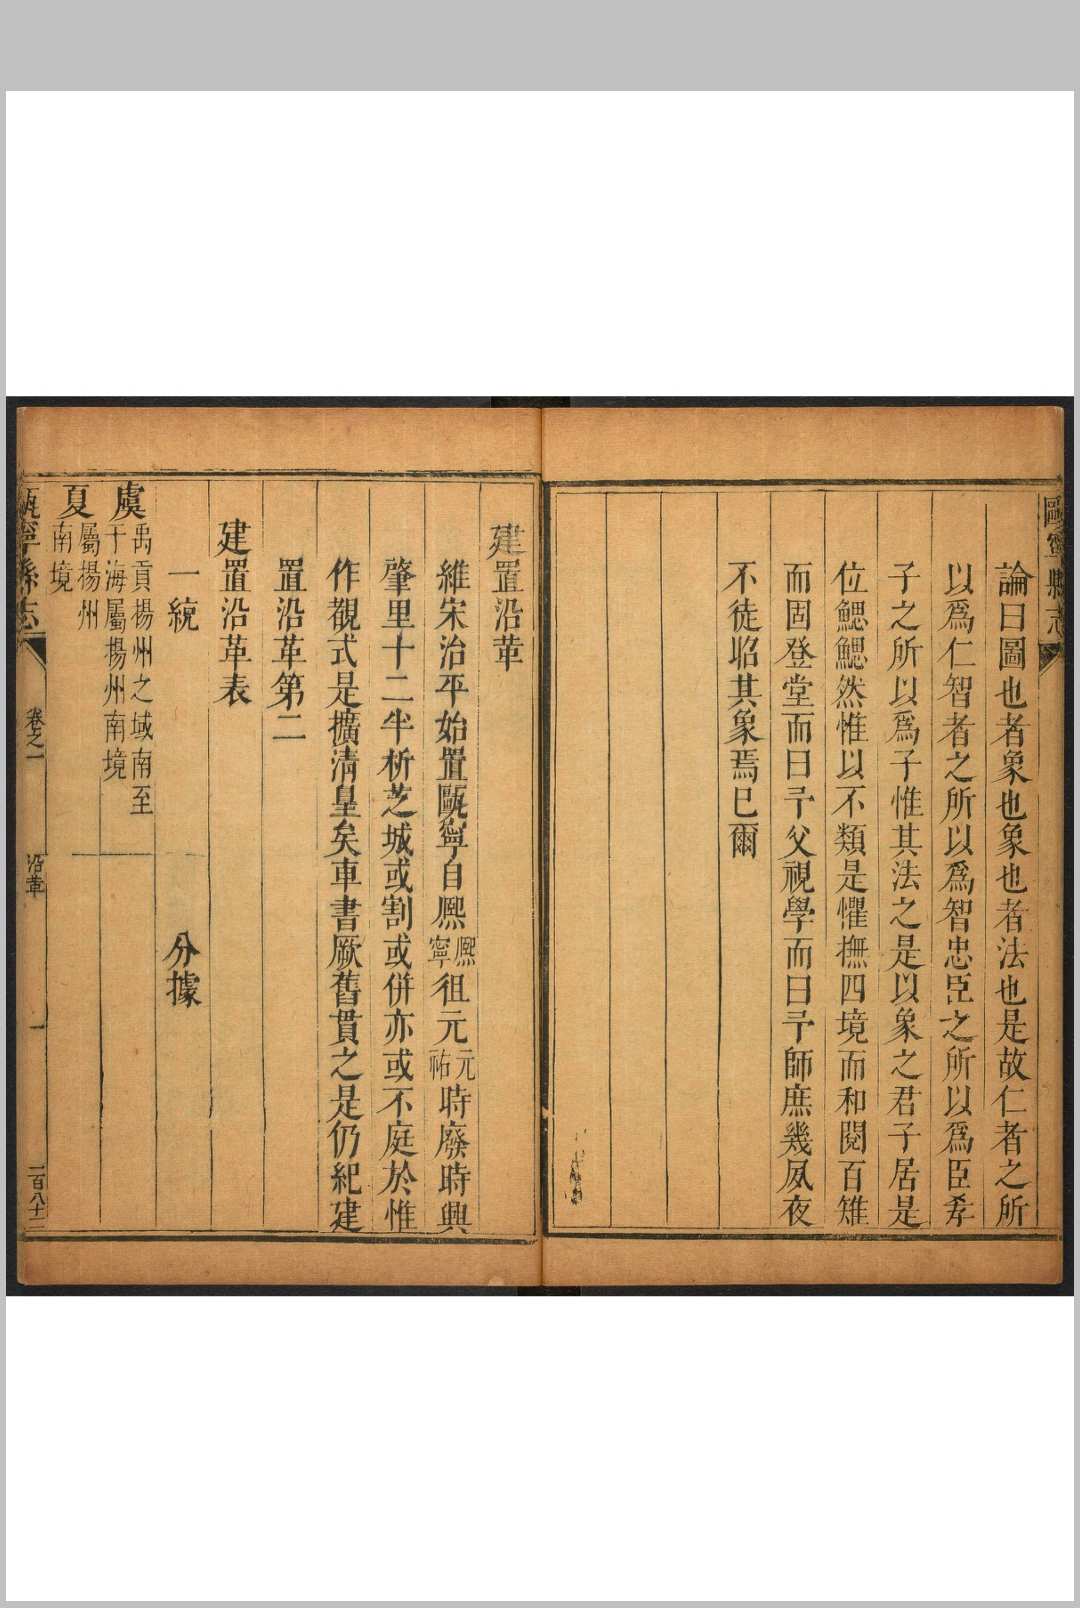 甌寧縣志
論曰圖也者象也象也者法也是故仁者之所
以爲仁智者之所以爲智忠臣之所以爲臣孝
子之所以爲子惟其法之是以象之君子居是
位鰓鰓然惟以不類是懼撫四境而和閱百雉
而固登堂而曰予父視學而曰予師庶幾夙夜
不徒昭其象焉已爾
建置沿革
維宋治平始置甌寧自熈熈寧徂元元祐時廢時興
肇里十二半析芝城或割或併亦或不庭於惟
作觀式是擴清皇矣車書厥舊貫之是仍紀建
置沿革第二
建置沿革表
一統 分據
虞禹貢揚州之域南至
于海屬揚州南境
夏屬揚州
南境
甌寧縣志 卷之一 沿革 一 二百八十二